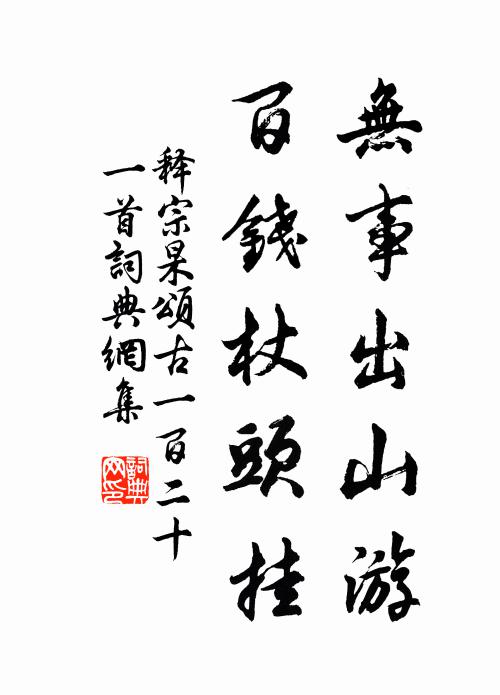 無事出山游
百錢杖頭挂
释宗杲頌古一百二十
一首詞典網集
詞典网印